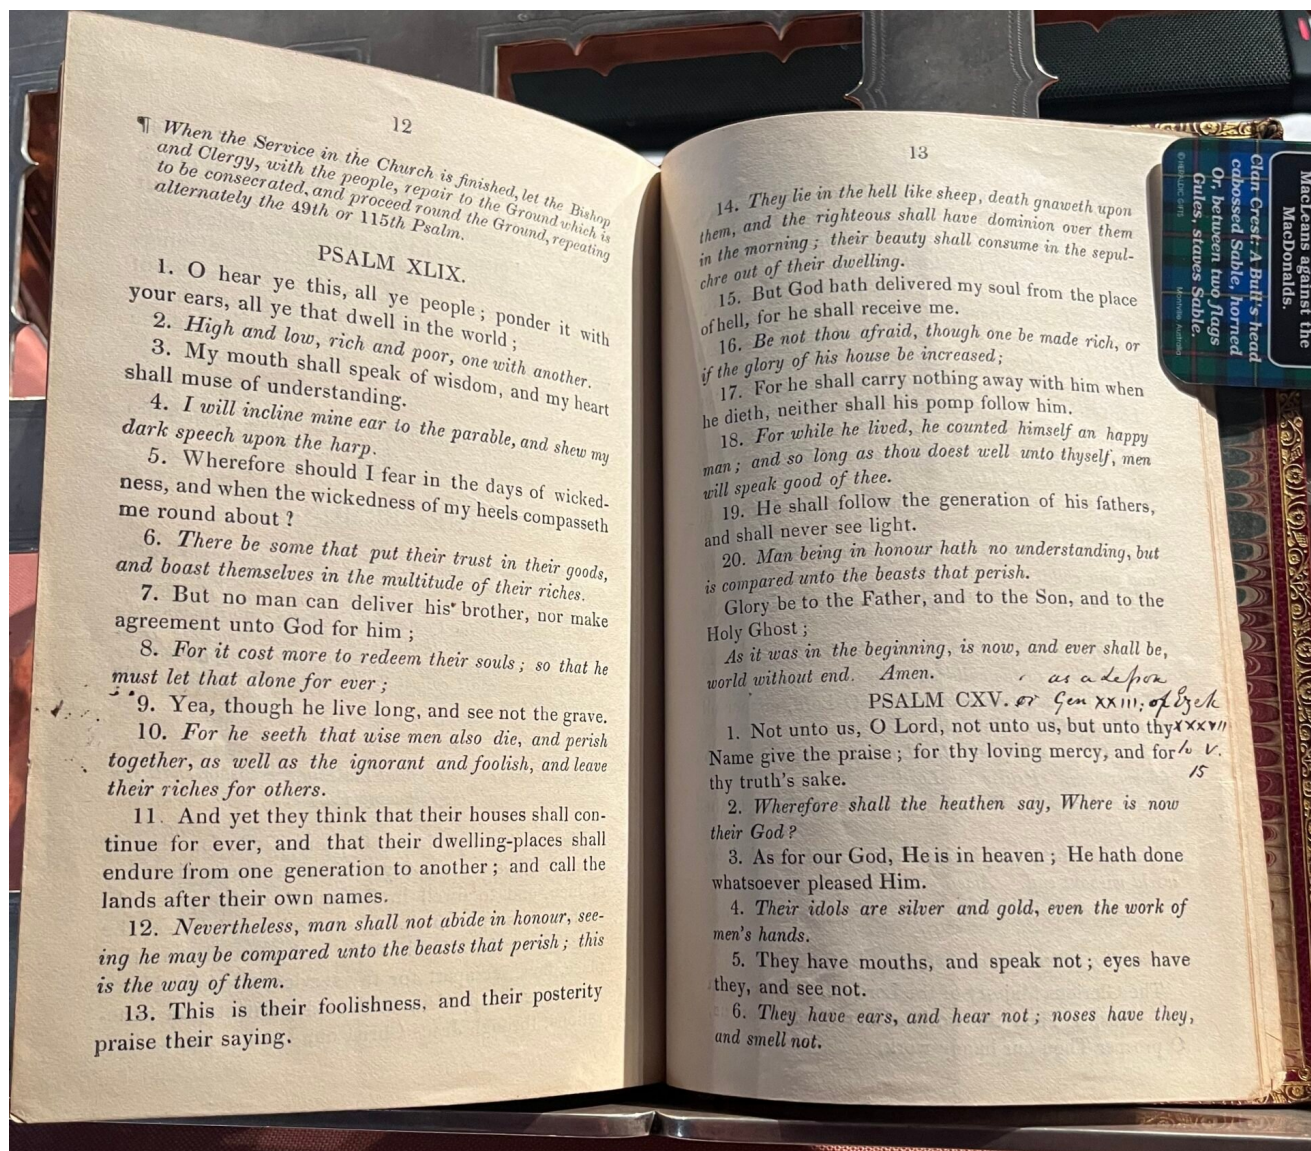 12
¶ When the Service in the Church is finished, let the Bishop
and Clergy, with the people, repair to the Ground which is
to be consecrated, and proceed round the Ground, repeating
alternately the 49th or 115th Psalm.
PSALM XLIX.
1. O hear ye this, all ye people; ponder it with
your ears, all ye that dwell in the world;
2. High and low, rich and poor, one with another.
3. My mouth shall speak of wisdom, and my heart
shall muse of understanding.
4. I will incline mine ear to the parable, and shew my
dark speech upon the harp.
5. Wherefore should I fear in the days of wicked-
ness, and when the wickedness of my heels compasseth
me round about?
6. There be some that put their trust in their goods,
and boast themselves in the multitude of their riches.
7. But no man can deliver his brother, nor make
agreement unto God for him;
8. For it cost more to redeem their souls; so that he
must let that alone for ever;
9. Yea, though he live long, and see not the grave.
10. For he seeth that wise men also die, and perish
together, as well as the ignorant and foolish, and leave
their riches for others.
11. And yet they think that their houses shall con-
tinue for ever, and that their dwelling-places shall
endure from one generation to another; and call the
lands after their own names.
12. Nevertheless, man shall not abide in honour, see-
ing he may be compared unto the beasts that perish; this
is the way of them.
13. This is their foolishness, and their posterity
praise their saying.
13
14. They lie in the hell like sheep, death gnaweth upon
them, and the righteous shall have dominion over them
in the morning; their beauty shall consume in the sepul-
chre out of their dwelling.
15. But God hath delivered my soul from the place
of hell, for he shall receive me.
16. Be not thou afraid, though one be made rich, or
if the glory of his house be increased;
17. For he shall carry nothing away with him when
he dieth, neither shall his pomp follow him.
18. For while he lived, he counted himself an happy
man; and so long as thou doest well unto thyself, men
will speak good of thee.
19. He shall follow the generation of his fathers,
and shall never see light.
20. Man being in honour hath no understanding, but
is compared unto the beasts that perish.
Glory be to the Father, and to the Son, and to the
Holy Ghost;
As it was in the beginning, is now, and ever shall be,
world without end. Amen.
as a Lesson
PSALM CXV. or Gen XXIII; of Ezek
XXXVII
to V.
15
1. Not unto us, O Lord, not unto us, but unto thy
Name give the praise; for thy loving mercy, and for
thy truth's sake.
2. Wherefore shall the heathen say, Where is now
their God?
3. As for our God, He is in heaven; He hath done
whatsoever pleased Him.
4. Their idols are silver and gold, even the work of
men's hands.
5. They have mouths, and speak not; eyes have
they, and see not.
6. They have ears, and hear not; noses have they,
and smell not.
MacLeans against the
MacDonalds.
Clan Crest: A Bull's head
cabossed Sable, horned
Or, between two flags
Gules, staves Sable.
© HERALDIC GIFTS
Montville, Australia